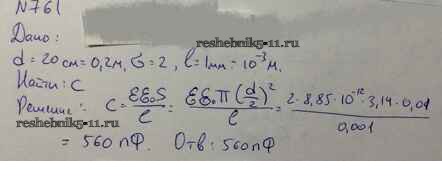 N761
Дано:
reshebnik5-11.ru
d = 20 см = 0,2м, Ɛ = 2, l = 1мм = 10⁻³ м.
Найти: C
Решение: C = ƐƐ₀S/l = ƐƐ₀π(d/2)²/l = 2·8,85·10⁻¹²·3,14·0,01/0,001
reshebnik5-11.ru
= 560 пФ. Отв: 560 пФ